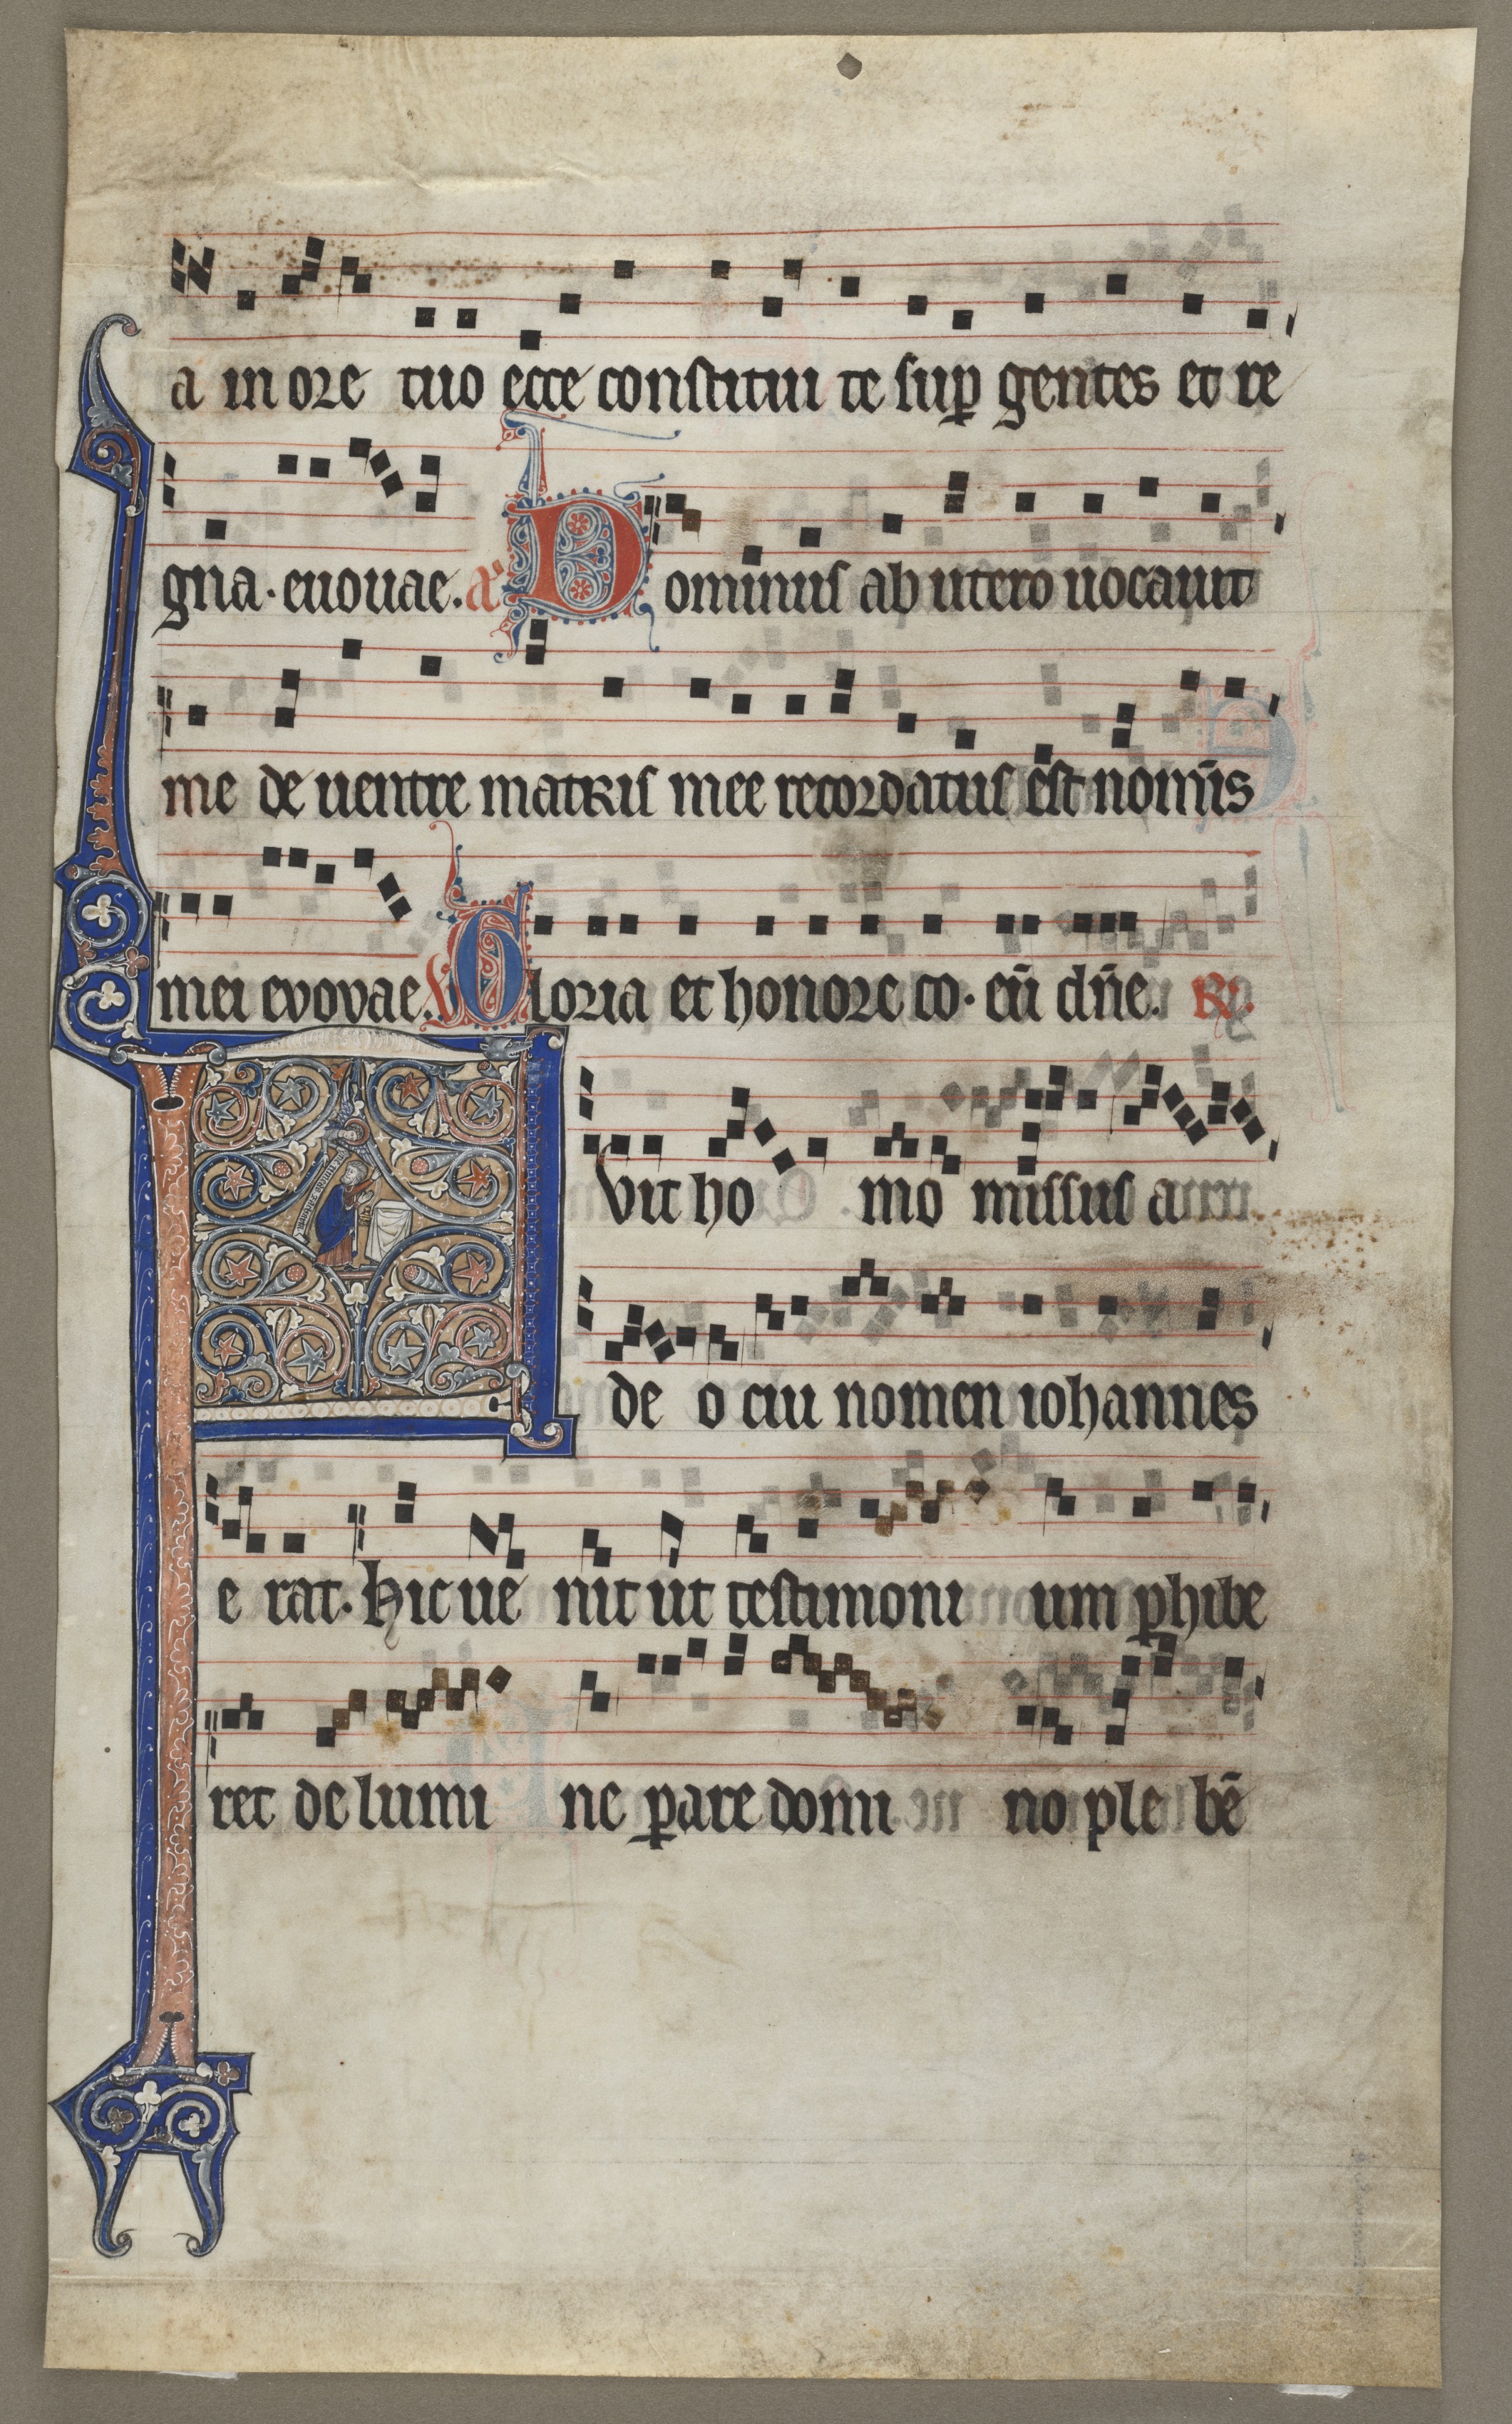 a in ore tuo ecce constitui te suꝑ gentes et re
gna. euouae. a᷑ Dominus ab utero uocauit
me de uentre matris mee recordatus est nomīs
mei evovae. V̷ Gloria et honore co. eū dn̄e. R̷.
Fvit ho mo missus a
de o cui nomen iohannes
e rat. hic ue nit ut testimoni um ꝑhibe
ret de lumi ne ꝑare domi no ple bē